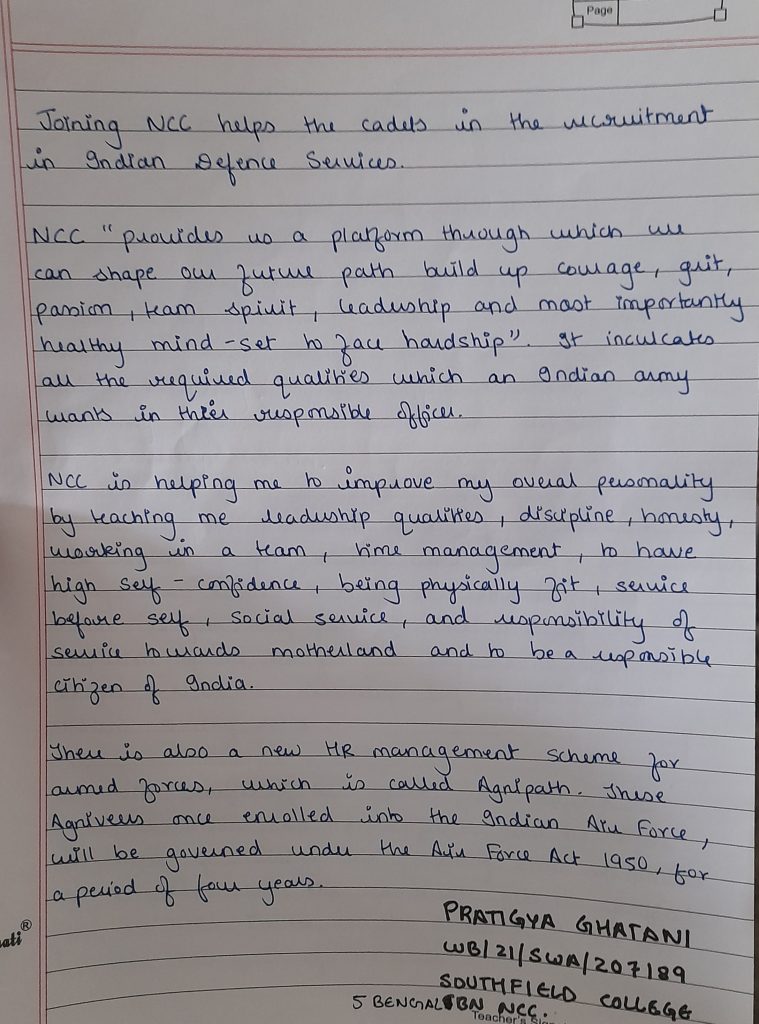 Page
Joining NCC helps the cadets in the recruitment
in Indian Defence Services.
NCC "provides us a platform through which we
can shape our future path build up courage, guit,
passion, team spirit, leadership and most importantly
healthy mind-set to face hardship". It inculcates
all the required qualities which an Indian army
wants in thier responsible officer.
NCC is helping me to improve my overal personality
by teaching me leadership qualities, discipline, honesty,
working in a team, time management, to have
high self-confidence, being physically fit, service
before self, social service, and responsibility of
service towards motherland and to be a reponsible
citizen of India.
There is also a new HR management scheme for
armed forces, which is called Agnipath. These
Agniveers once enrolled into the Indian Air Force,
will be governed under the Air Force Act 1950, for
a period of four years.
PRATIGYA GHATANI
ati®
WB/21/SWA/207189
SOUTHFIELD COLLEGE
5 BENGAL BN NCC.
Teacher's